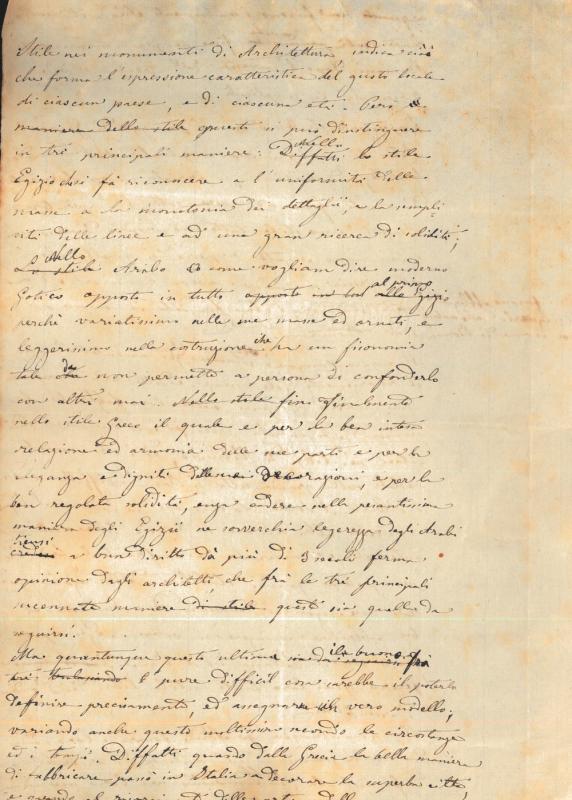 Stile nei monumenti di Architettura, indica ciò
che forma l'espressione caratteristica del gusto locale
di ciascun paese, e di ciascuna età. Però
maniera dello stile questi si può distinguere
in tre principali maniere: Diffatti Nello lo stile
Egizio che si fa riconoscere a l'uniformità delle
masse a la monotonia dei dettaglii, e la sempli-
cità delle linee e ad una gran ricerca di solidità;
Lo stile Nello Arabo o come vogliam dire moderno
Gotico opposto in tutto opposto in tutto al primo allo Egizio
perchè variatissimo nelle sue masse ed ornati, e
leggerissimo nella costruzione che ha un fisonomia
tale da non permette a persona di confonderlo
con altri mai. Nello stile fine Finalmente
nello stile Greco il quale e per la ben intesa
relazione ed armonia delle sue parti e per la
eleganza e dignità delle sue decoragioni, e per la
ben regolata solidità, senza cadere nella pesantissima
maniera degli Egizii ne soverchia legerezza degli Arabi
tiensi a buon diritto da più di 3 secoli ferma
opinione dagli architetti, che frà le tre principali
accennate maniere di stile questi sia quella da
seguirsi.
Ma quantunque questo ultimo sia da il buono frà
è pure difficil cosa sarebbe il poterlo
definire precisamente, ed assegnare un vero modello;
variando anche questo moltissimo secondo le circostanze
ed i tempi. Diffatti quando dalla Grecia la bella maniera
di fabbricare passò in Italia a decorare la superba città,